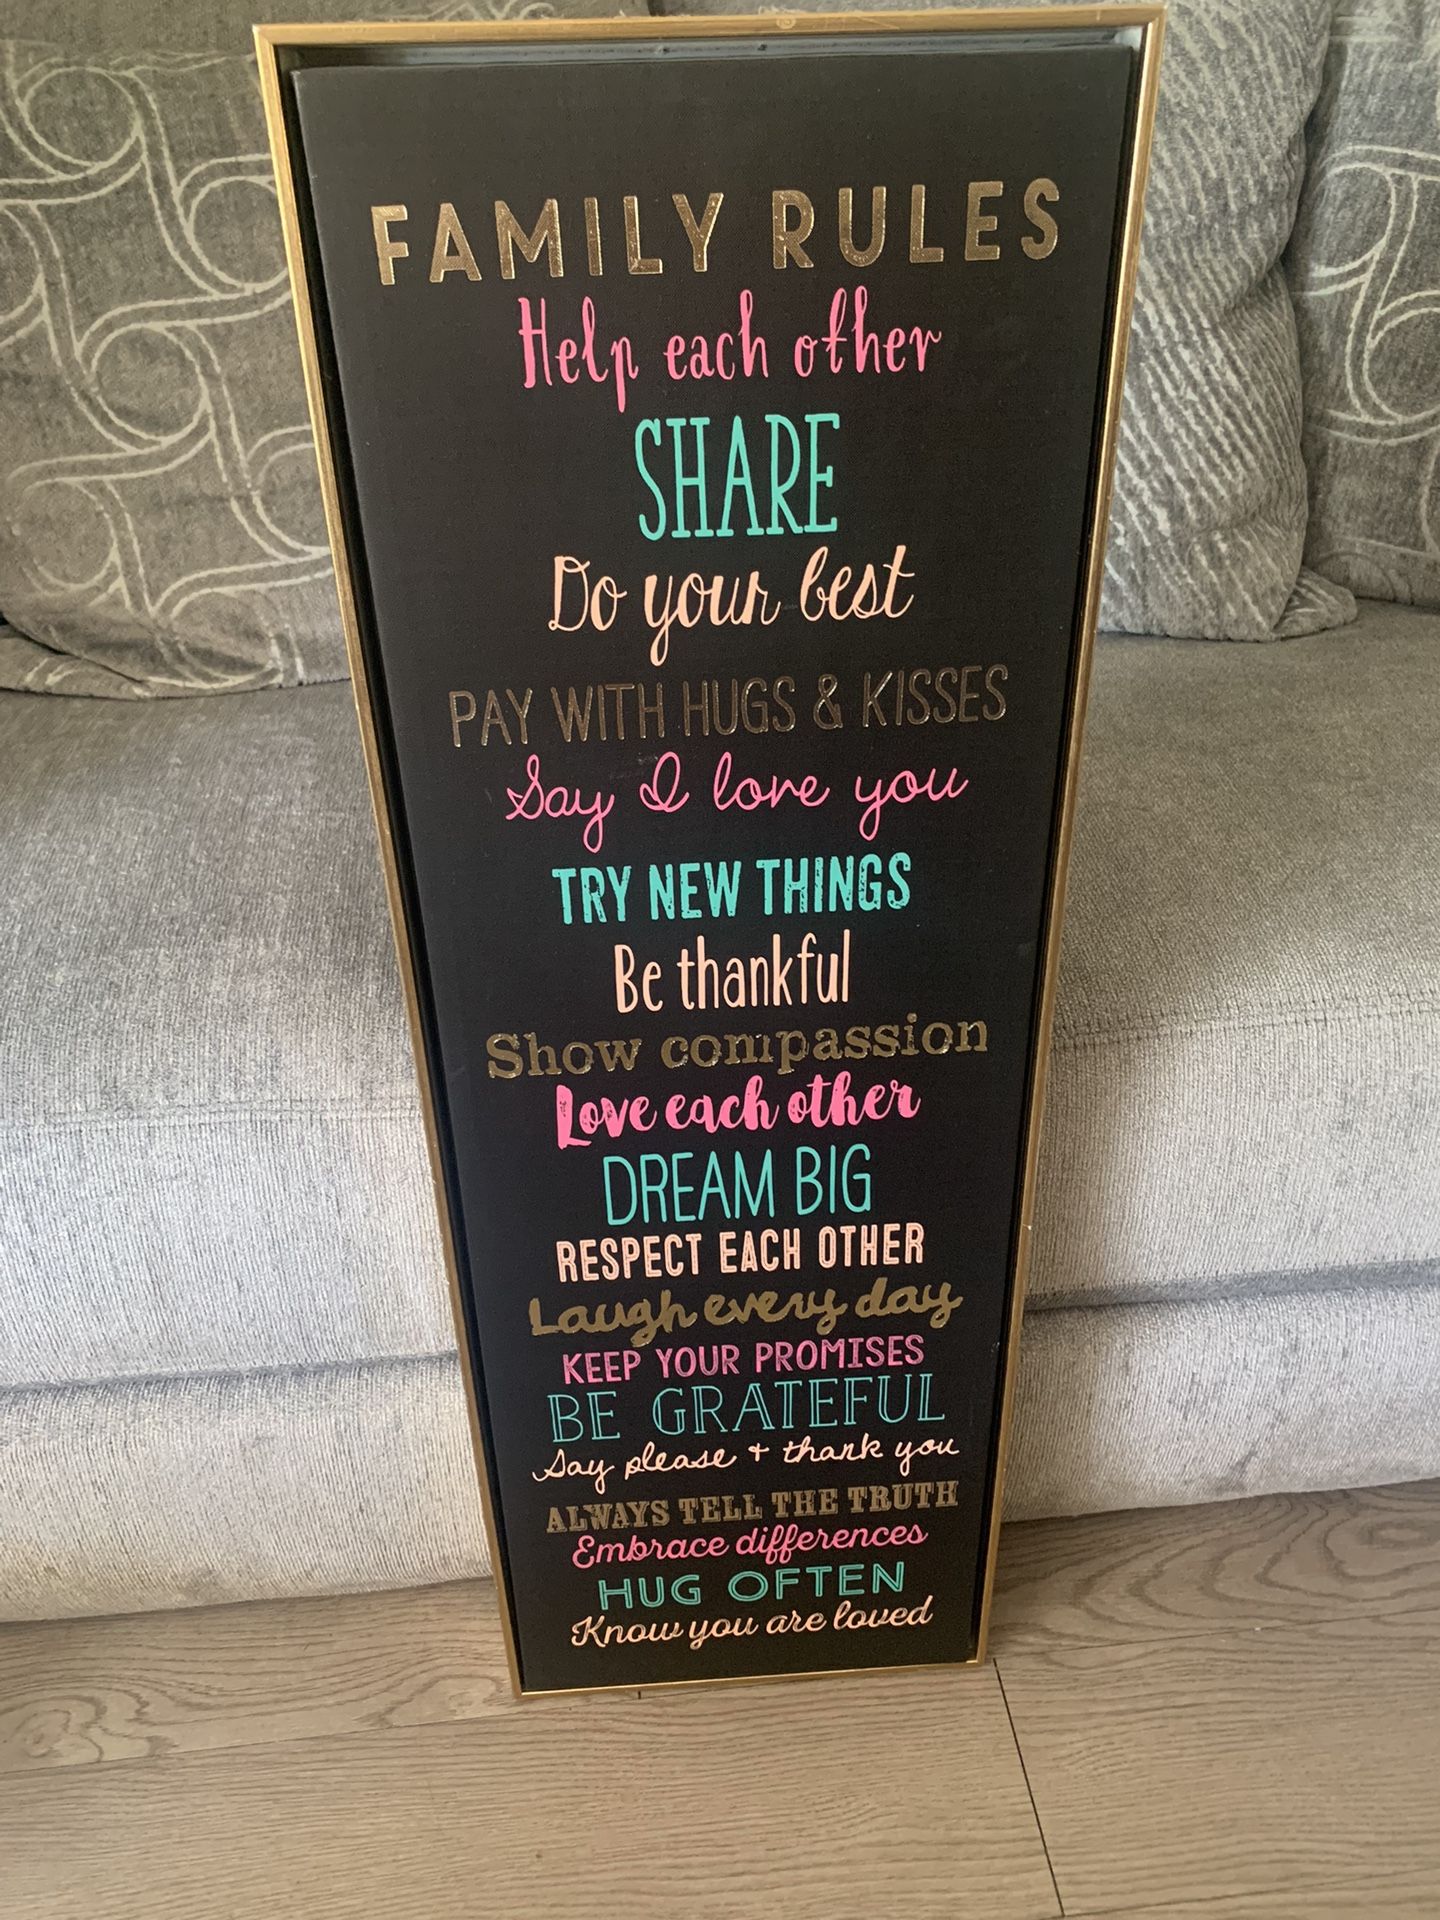 FAMILY RULES
Help each other
SHARE
Do your best
PAY WITH HUGS & KISSES
Say I love you
TRY NEW THINGS
Be thankful
Show compassion
Love each other
DREAM BIG
RESPECT EACH OTHER
Laugh every day
KEEP YOUR PROMISES
BE GRATEFUL
Say please + thank you
ALWAYS TELL THE TRUTH
Embrace differences
HUG OFTEN
Know you are loved